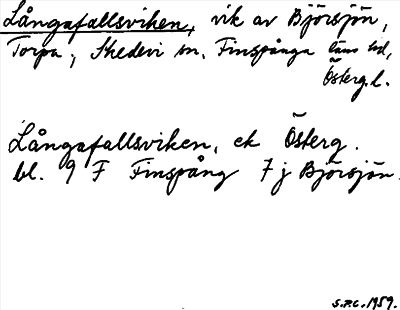 Långafallsviken, vik av Björsjön,
Torpa, Skedevi sn, Finspånga läns hd,
Österg. l.
Långafallsviken, ek Österg.
bl. 9 F Finspång 7 j Björsjön.
S.P.C. 1959.